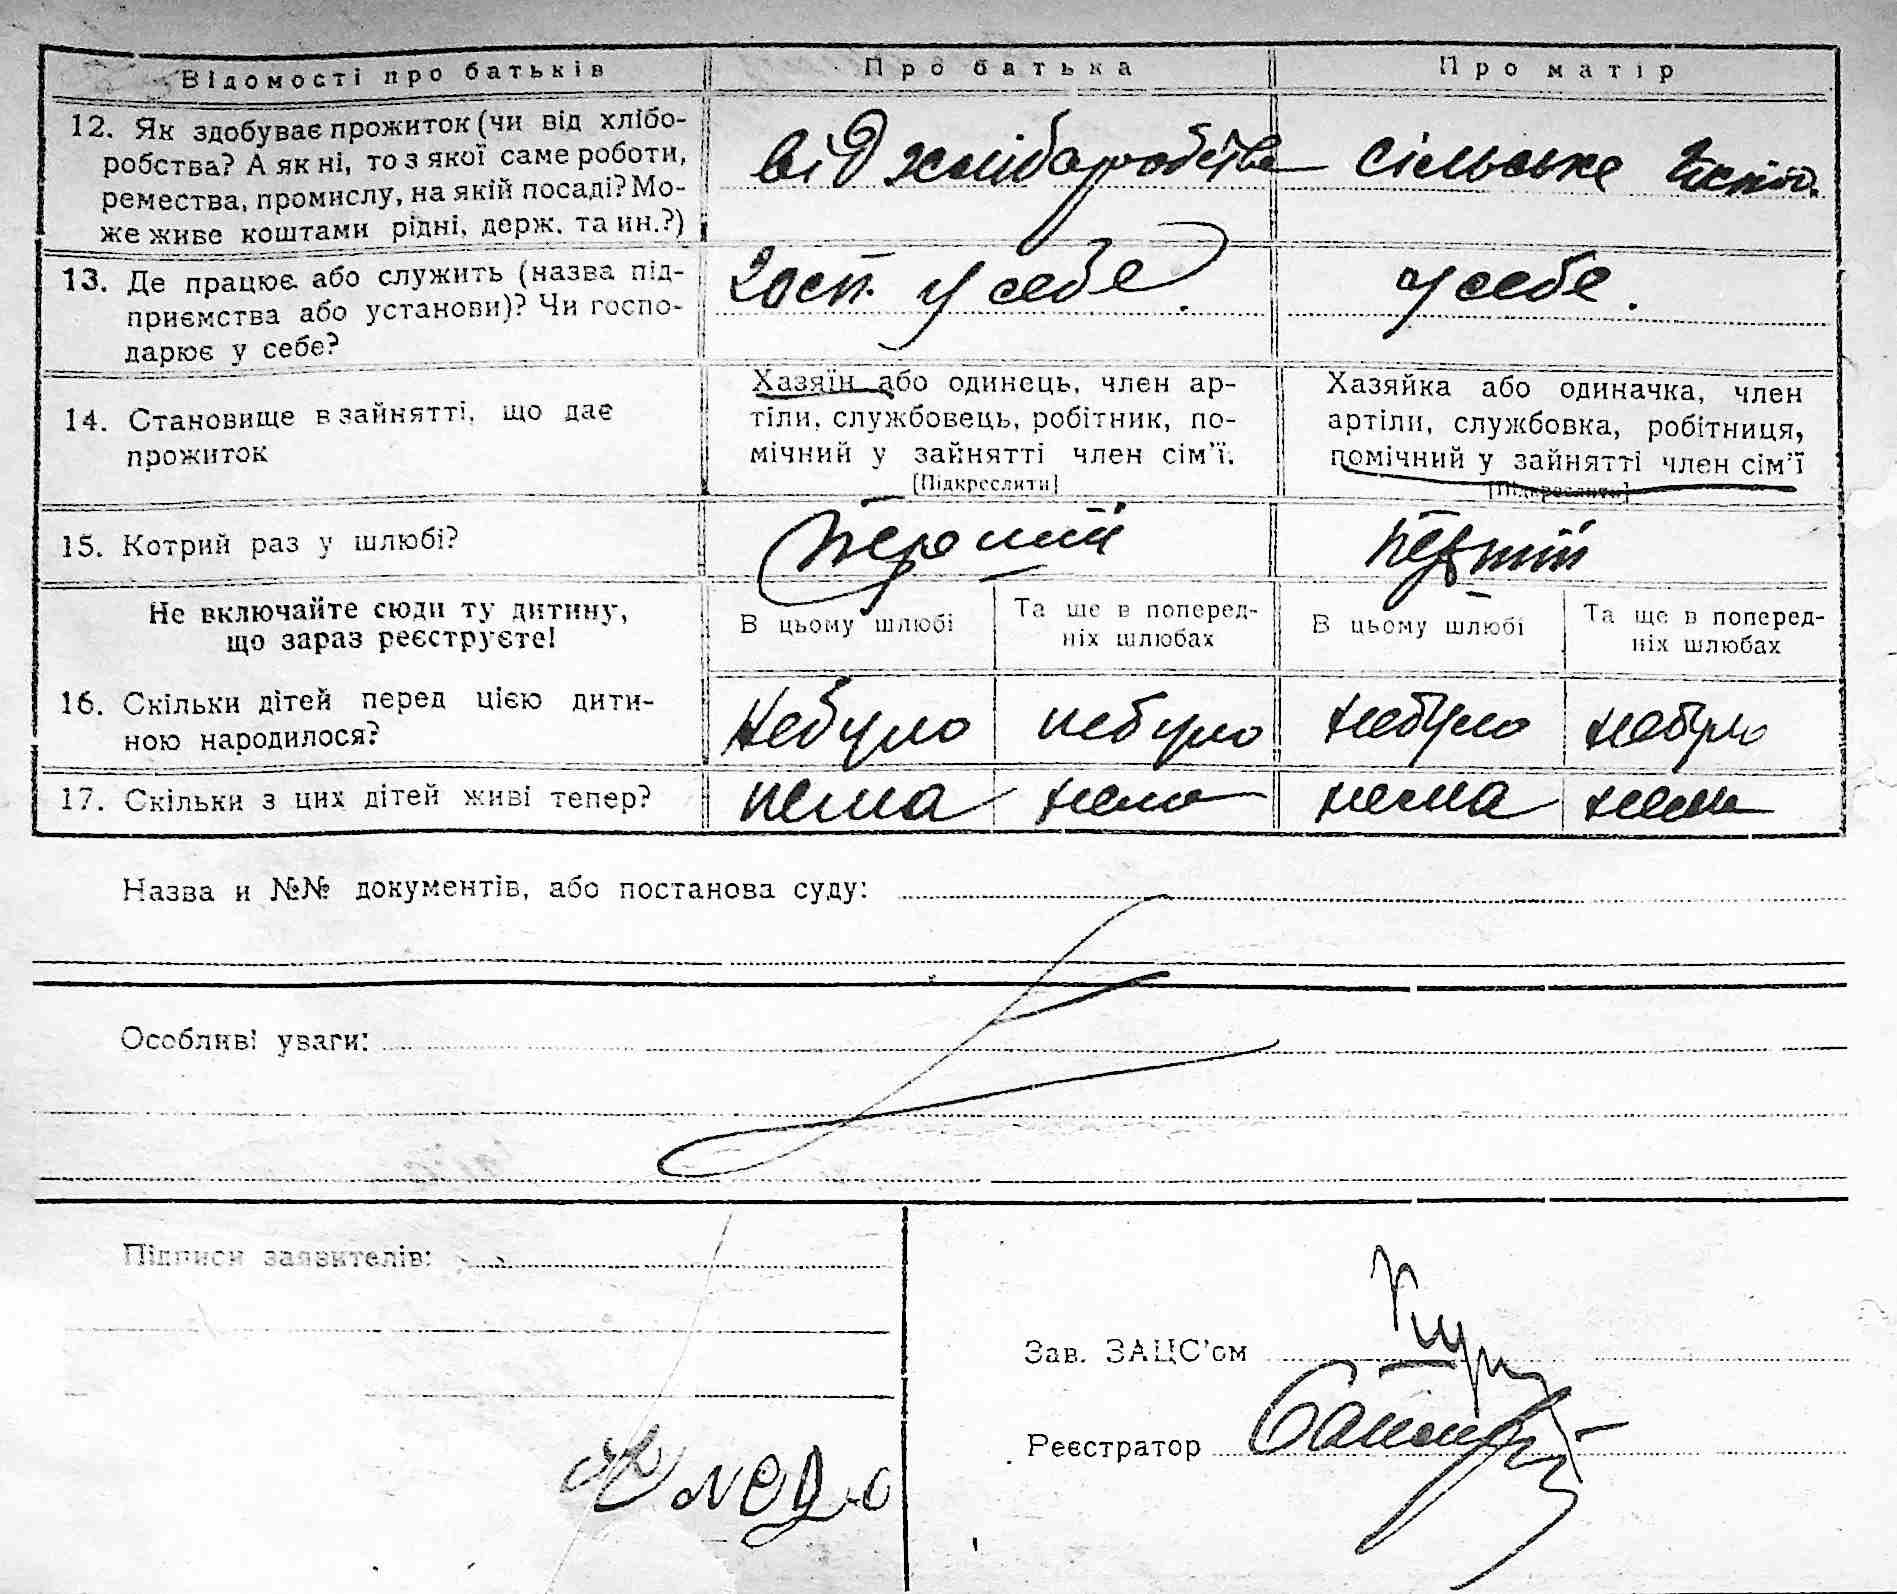 Відомості про батьків Про батька Про матір
12. Як здобуває прожиток (чи від хлібо-
робства? А як ні, то з якої саме роботи,
ремества, промислу, на якій посаді? Мо-
же живе коштами рідні, держ. та ин.?)
від хліборобства сільське госпо.
13. Де працює або служить (назва під-
приємства або установи)? Чи госпо-
дарює у себе?
госп. у себе. у себе.
14. Становище в зайнятті, що дає
прожиток
Хазяїн або одинець, член ар-
тіли, службовець, робітник, по-
мічний у зайнятті член сім'ї.
[Підкреслити]
Хазяйка або одиначка, член
артіли, службовка, робітниця,
помічний у зайнятті член сім'ї
[Підкреслити]
15. Котрий раз у шлюбі? перший перший
Не включайте сюди ту дитину,
що зараз реєструєте!
В цьому шлюбі
Та ще в поперед-
ніх шлюбах
В цьому шлюбі
Та ще в поперед-
ніх шлюбах
16. Скільки дітей перед цією дити-
ною народилося?
небуло небуло небуло небуло
17. Скільки з цих дітей живі тепер? нема нема нема нема
Назва и №№ документів, або постанова суду:
Особливі уваги:
Підписи заявителів:
Зав. ЗАЦС'ом
Реєстратор